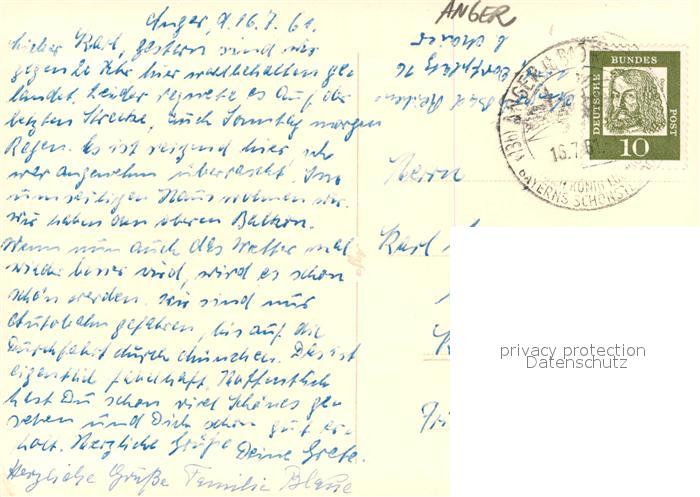 Anger, d. 16.7.61.
Lieber Karl, gestern sind wir
gegen 20 Uhr hier wohlbehalten ge
landet. Leider regnete es auf der
letzten Strecke, auch Sonntag morgen
Regen. Es ist reizend hier, ich
war angenehm überrascht. Im
Haus wohnen wir.
Wir haben den oberen Balkon.
Wenn nun auch das Wetter mal
wieder besser wird, wird es schon
schön werden. Wir sind nur
Autobahn gefahren, bis auf die
Durchfahrt durch München. Das ist
eigentlich fabelhaft. Hoffentlich
hast Du schon viel Schönes ge
sehen und Dich schon gut er
holt. Herzliche Grüße
Deine Grete.
Herzliche Grüße Familie
ANGER
Herrn
Karl
K
Fri
DEUTSCHE BUNDES POST
10
(13b) ANGER
16.7.61
BAYERNS SCHÖNSTE
privacy protection
Datenschutz